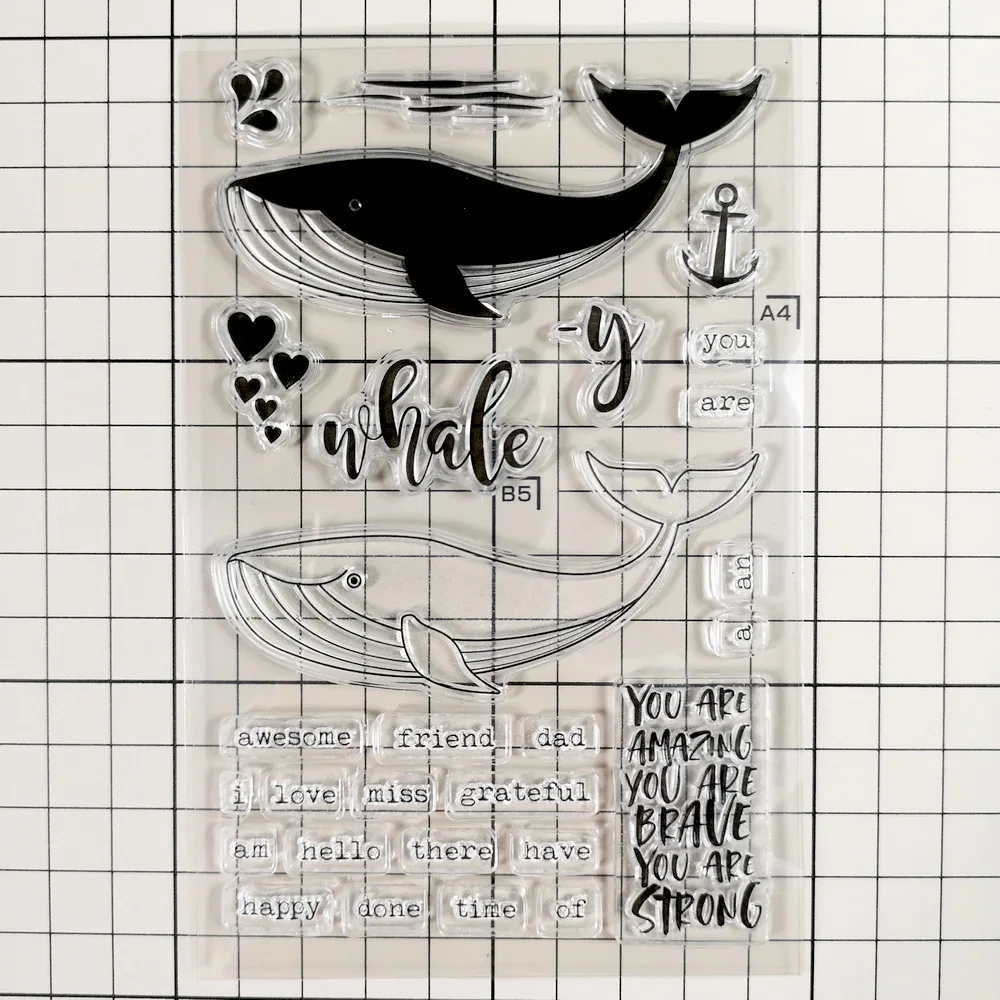 A4
-y
you
are
whale
B5
an
a
awesome friend dad
i love miss grateful
am hello there have
happy done time of
YOU ARE
AMAZING
YOU ARE
BRAVE
YOU ARE
STRONG